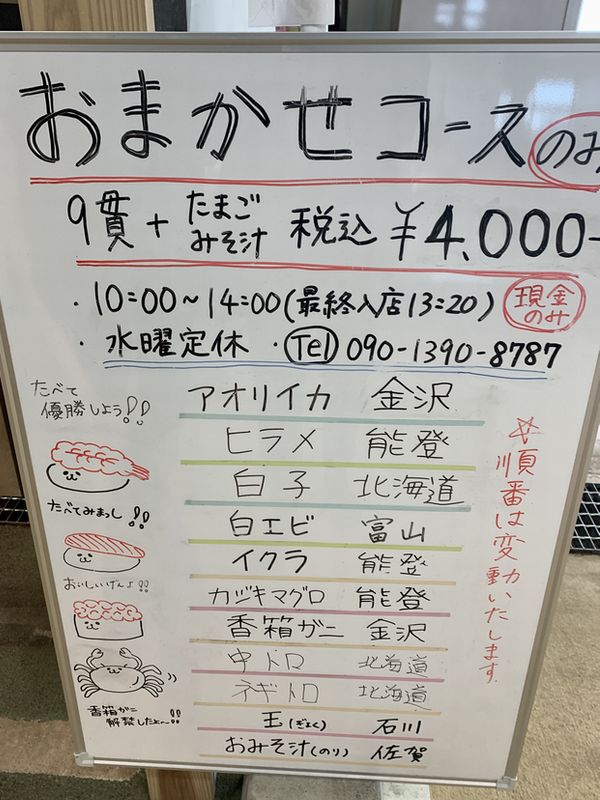 おまかせコースのみ
9貫+たまご みそ汁 税込 ¥4,000-
・10:00~14:00(最終入店13:20) 現金のみ
・水曜定休 ・Tel 090-1390-8787
たべて
優勝しよう!!
たべてみまっし!!
おいしいげんよ!!
香箱ガニ
解禁したよ~!!
アオリイカ 金沢
ヒラメ 能登
白子 北海道
白エビ 富山
イクラ 能登
カヅキマグロ 能登
香箱ガニ 金沢
中トロ 北海道
ネギトロ 北海道
玉(ぎょく) 石川
おみそ汁(のり) 佐賀
☆順番は変動いたします